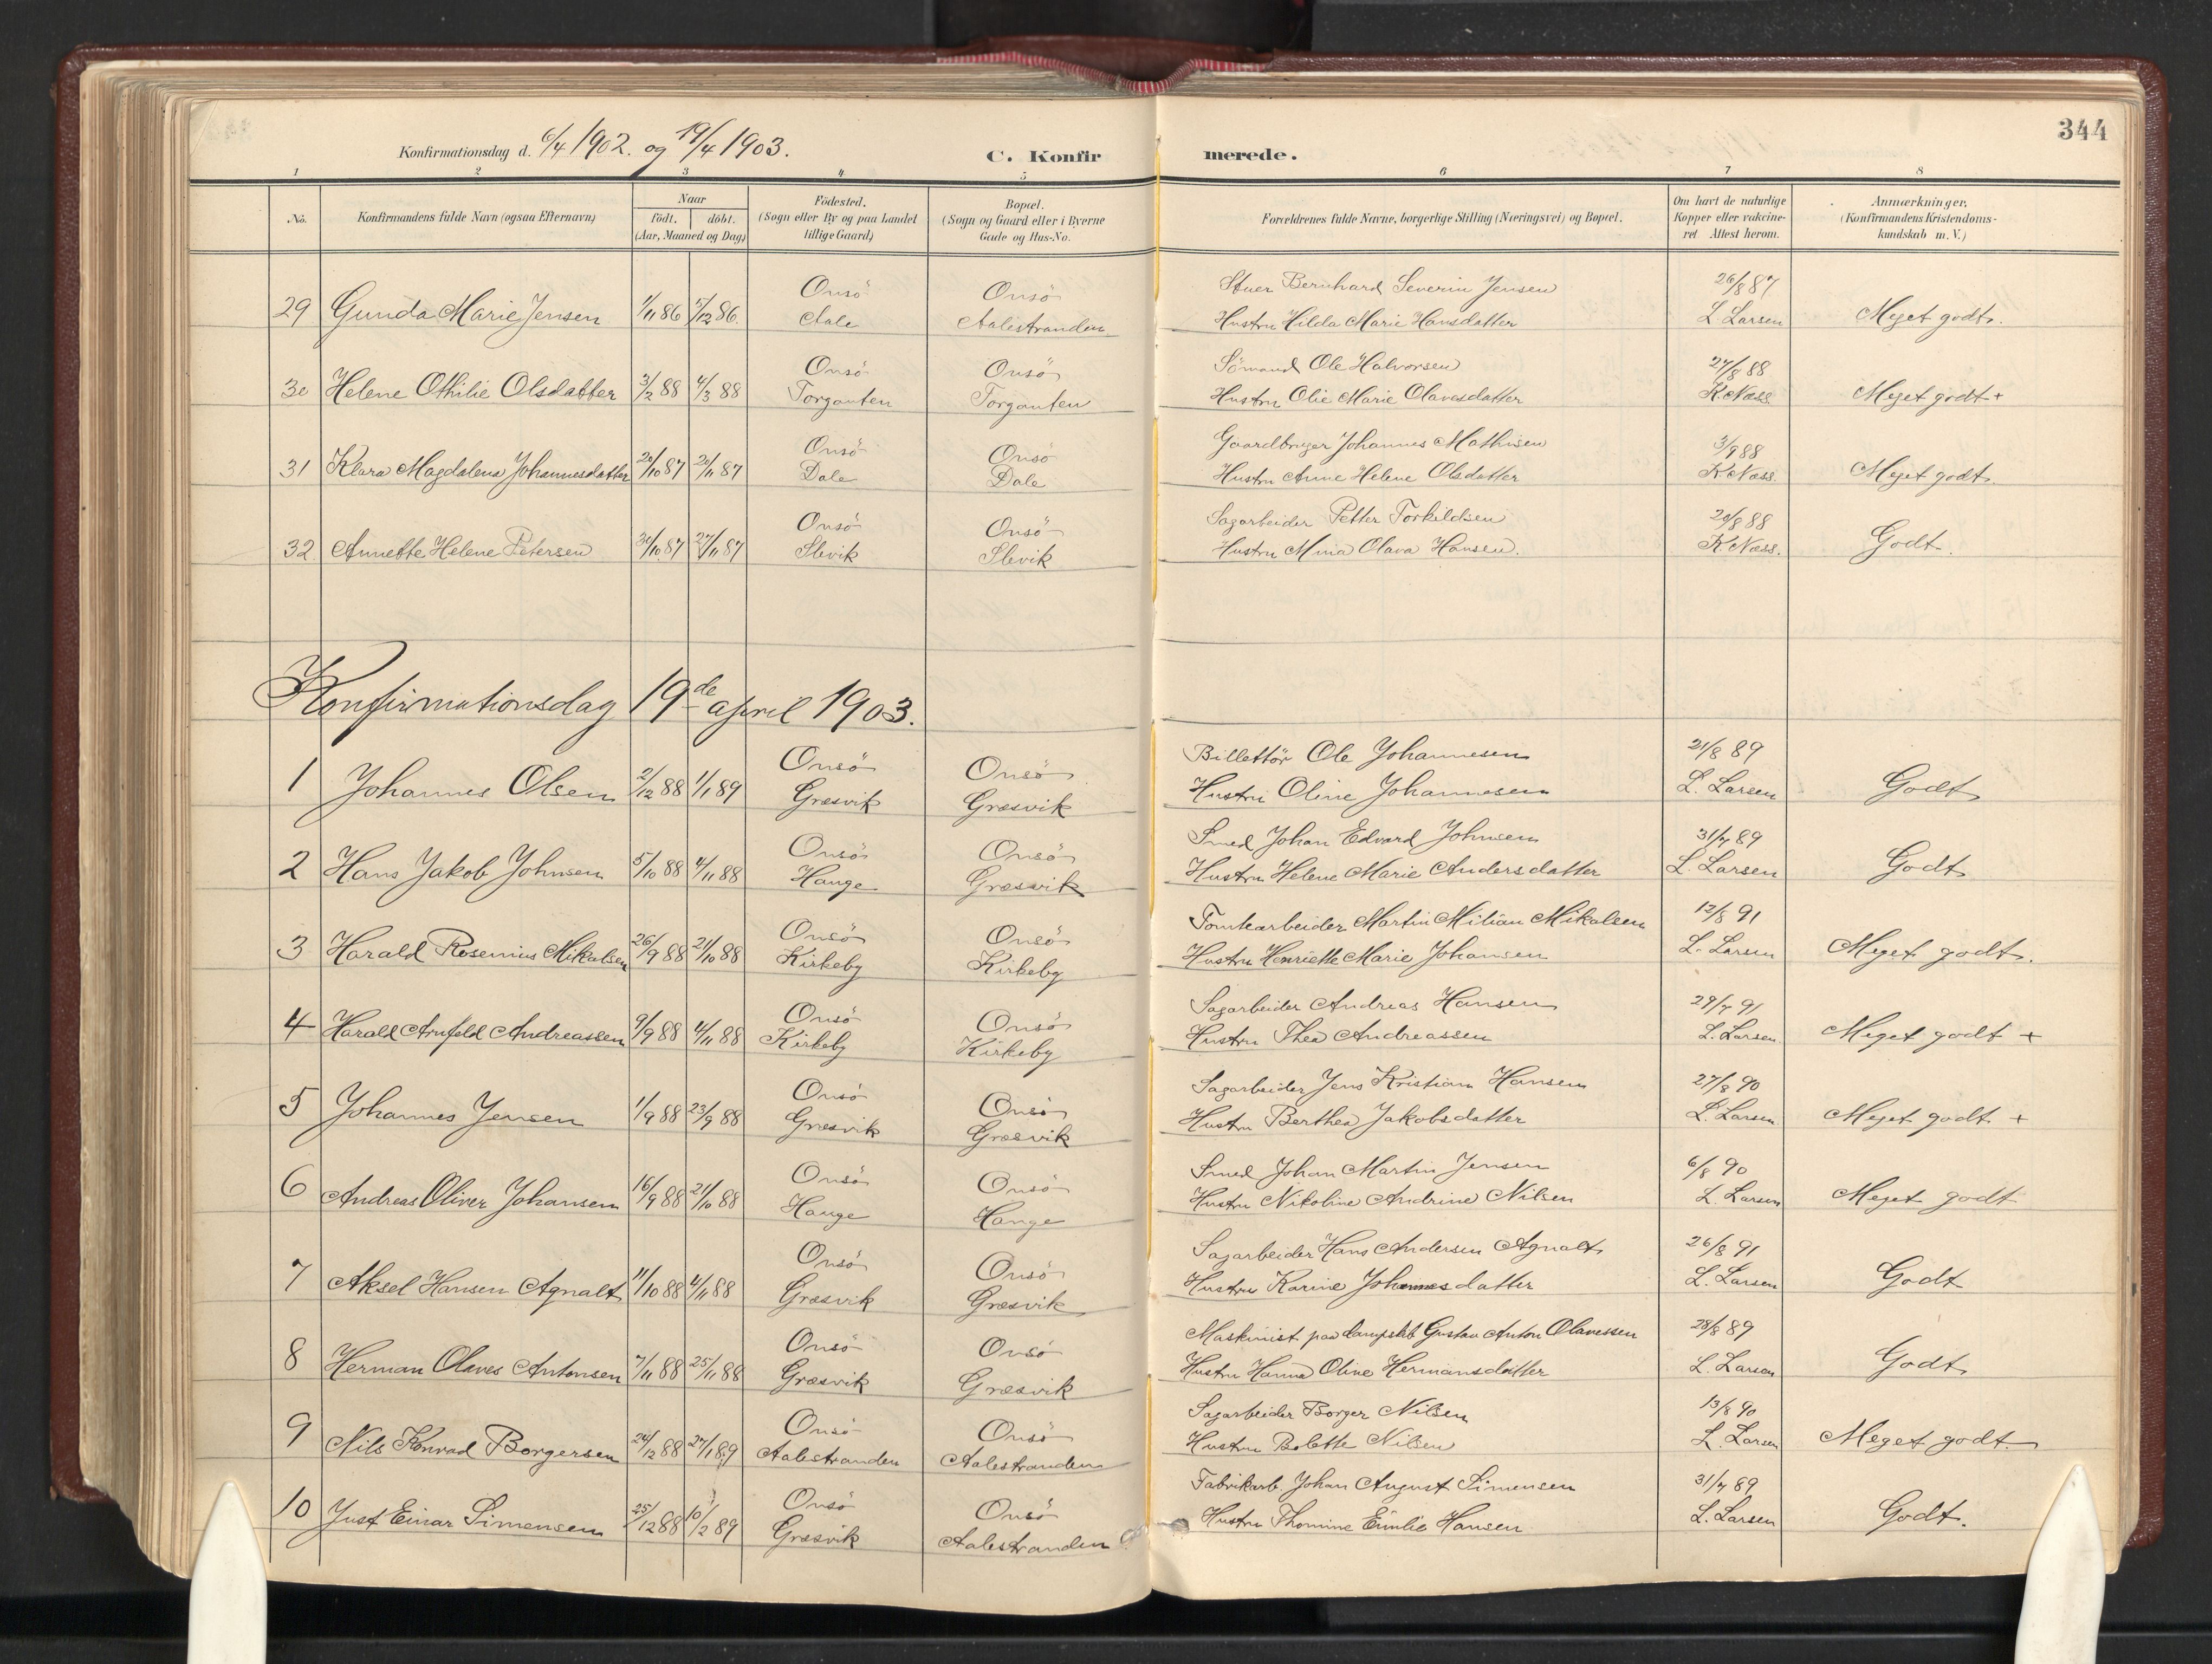 344
Konfirmationsdag d. 6/4 1902. og 19/4 1903.
C. Konfirmerede.
1 2 3 4 5 6 7 8
No.
Konfirmandens fulde Navn (ogsaa Efternavn)
Naar
födt. döbt.
(Aar, Maaned og Dag)
Födested.
(Sogn eller By og paa Landet
tillige Gaard)
Bopæl.
(Sogn og Gaard eller i Byerne
Gade og Hus-No.
Forældrenes fulde Navne, borgerlige Stilling (Næringsvei) og Bopæl.
Om havt de naturlige
Kopper eller vakcine-
ret Attest herom.
Anmærkninger.
(Konfirmandens Kristendoms-
kundskab m. V.)
Onsö Onsö Stuer Bernhard Severin Jensen 26/8 87
29 Gunda Marie Jensen 1/11 86 5/12 86. Aale Aalestranden Hustru Hilda Marie Hansdatter L Larsen Meget godt.
Onsö Onsö Sömand Ole Halvorsen 27/8 88
30 Helene Othilie Olsdatter 3/2 88 4/3 88 Torgauten Torgauten Hustru Olie Marie Olavesdatter K Næss Meget godt +
Onsö Onsö Gaardbruger Johannes Mathisen 3/9 88
31 Klara Magdalena Johannesdatter 20/10 87 20/11 87 Dale Dale Hustru Anne Helene Olsdatter K Næss. Meget godt.
Onsö Onsö Sagarbeider Petter Torkildsen 20/8 88
32 Annette Helene Petersen 30/10 87 27/11 87 Slevik Slevik Hustru Mina Olava Hansen. K Næss. Godt.
Konfirmationsdag 19de april 1903.
Onsö Onsö Billettör Ole Johannesen 21/8 89
1 Johannes Olsen 2/12 88 1/1 89 Græsvik Græsvik Hustru Oline Johannesen L. Larsen Godt
Onsö Onsö Smed Johan Edvard Johnsen 31/7 89
2 Hans Jakob Johnsen 5/10 88 4/11 88 Hauge Græsvik Hustru Helene Marie Andersdatter L. Larsen Godt
Onsö Onsö Tomtearbeider Martin Milian Mikalsen 12/8 91
3 Harald Rosenius Mikalsen 26/9 88 21/10 88 Kirkeby Kirkeby Hustru Henriette Marie Johansen L. Larsen Meget godt.
Onsö Onsö Sagarbeider Andreas Hansen 29/7 91
4 Harald Arnfeld Andreassen 9/9 88 4/11 88 Kirkeby Kirkeby Hustru Thea Andreassen L. Larsen Meget godt +
Onsö Onsö Sagarbeider Jens Kristian Hansen 27/8 90
5 Johannes Jensen 1/9 88 23/9 88 Græsvik Græsvik Hustru Berthea Jakobsdatter L. Larsen Meget godt +
Onsö Onsö Smed Johan Martin Jensen 6/8 90
6 Andreas Oliver Johansen 16/9 88 21/10 88 Hauge Hauge Hustru Nikoline Andrine Nilsen L. Larsen Meget godt
Onsö Onsö Sagarbeider Hans Andersen Agnalt 26/8 91
7 Aksel Hansen Agnalt 11/10 88 4/11 88 Græsvik Græsvik Hustru Karine Johannesdatter L. Larsen Godt
Onsö Onsö Maskinist paa dampskib Gustav Anton Olavessen 28/8 89
8 Herman Olaves Antonsen 7/11 88 25/11 88 Græsvik Græsvik Hustru Hanna Oline Hermansdatter L. Larsen Godt
Onsö Onsö Sagarbeider Borger Nilsen 13/8 90
9 Nils Konrad Borgersen 24/12 88 27/1 89 Aalestranden Aalestranden Hustru Bolette Nilsen L. Larsen Meget godt.
Onsö Onsö Fabrikarb. Johan August Simensen 31/7 89
10 Just Einar Simensen 25/12 88 10/2 89 Græsvik Aalestranden Hustru Thomine Emilie Hansen L. Larsen Godt.